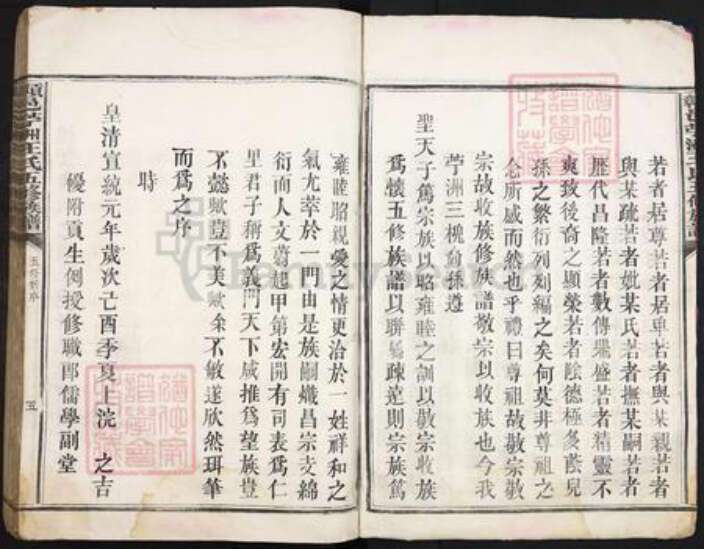 若者居尊若者居卑若者與某親若者
與某疏若者妣某氏若者撫某嗣若者
歷代昌隆若者數傳濃盛若者精靈不
爽致後裔之顯榮若者陰德極多蔭兒
孫之繁衍列列編之矣何莫非尊祖之
念所感而然也乎禮曰尊祖故敬宗敬
宗故收族修族譜敬宗以收族也今我
苧洲三槐裔孫遵
聖天子篤宗族以昭雍睦之訓以敬宗收族
為懷五修族譜以聯疎遠則宗族篤
雍睦昭親愛之情更洽於一姓祥和之
氣尤萃於一門由是族嗣熾昌宗支綿
衍而人文蔚起甲第宏開有司表為仁
里君子稱為義門天下咸推為望族豈
不懿歟豈不美歟余不敏遂欣然珥筆
而為之序
時
皇清宣統元年歲次己酉季夏上浣 之吉
優附貢生例授修職郎儒學副堂
苧洲王氏五修族譜
五修新序
五
FamilySearch